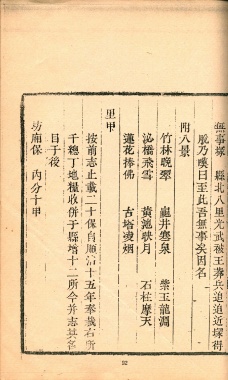 無事塚　縣北八里光武被王莽兵追迫近塚得
脫乃嘆曰至此吾無事矣因名
附八景
竹林晚翠　龍井寒泉　紫玉龍淵
泌橋飛雪　黃池映月　石柱摩天
蓮花捧佛　古塔凌烟
里甲
按前志止載二十保自順治十五年奉裁右所
千總丁地糧收併于縣增十二所今并志其名
目于後
坊廂保　內分十甲
92